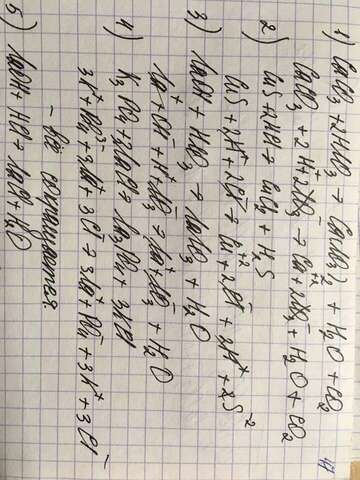 1) CaCO₃ + 2HNO₃ → Ca(NO₃)₂ + H₂O + CO₂
CaCO₃ + 2H⁺ + 2NO₃⁻ → Ca⁺² + 2NO₃⁻ + H₂O + CO₂
2) CuS + 2HCl → CuCl₂ + H₂S
CuS + 2H⁺ + 2Cl⁻ → Cu⁺² + 2Cl⁻ + 2H⁺ + 2S⁻²
3) NaOH + HNO₃ → NaNO₃ + H₂O
Na⁺ + OH⁻ + H⁺ + NO₃⁻ → Na⁺ + NO₃⁻ + H₂O
4) K₃PO₄ + 3NaCl → Na₃PO₄ + 3KCl
3K⁺ + PO₄³⁻ + 3Na⁺ + 3Cl⁻ → 3Na⁺ + PO₄⁻ + 3K⁺ + 3Cl⁻
- все сокращается.
5) NaOH + HCl → NaCl + H₂O